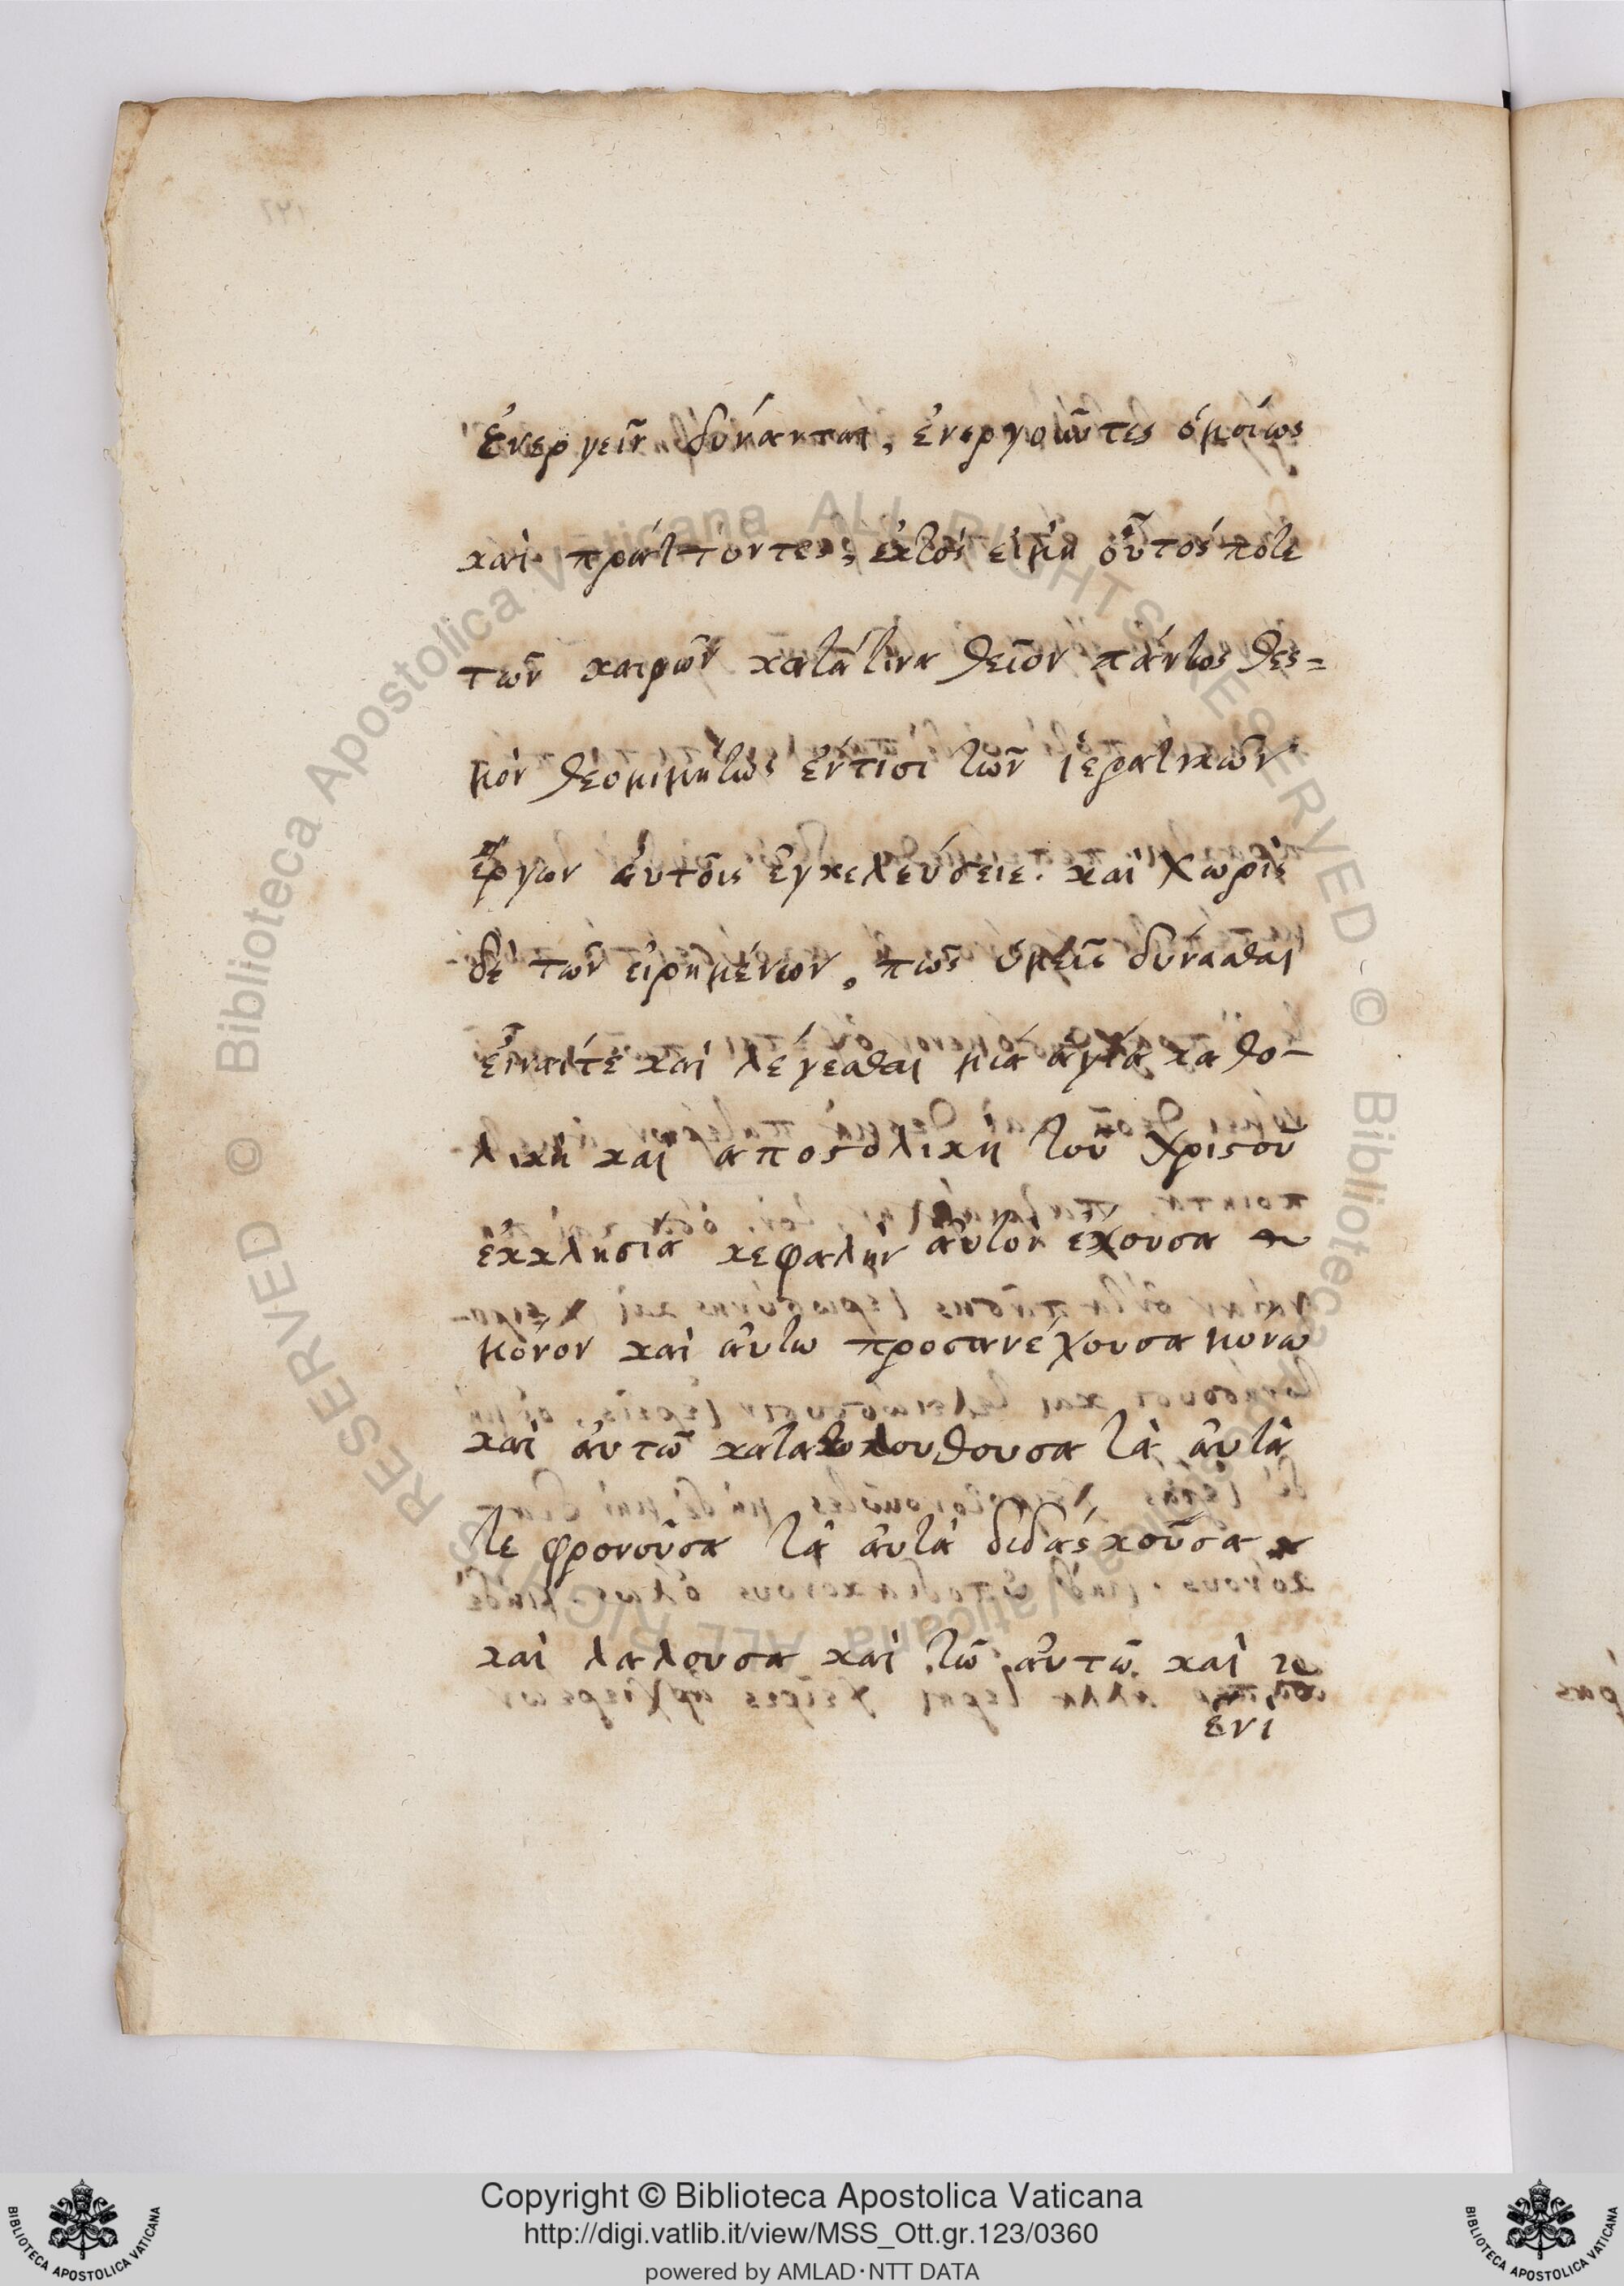 ἐνεργεῖν δύνανται, ἐνεργοῦντες ὁμοίως
καὶ πράττοντες, ἐκτὸς εἰμὴ οὗτός ποτε
τῶν καιρῶν κατάτινα θεῖον πάντως θεσ=
μὸν θεομιμήτως ἐντισι τῶν ἱερατικῶν
ἔργων αὐτοῖς ἐγκελεύσειε. καὶ χωρὶς
δὲ τῶν εἰρημένων, πῶς ὑμεῖς δύνασθαι
εἶναίτε καὶ λέγεσθαι μιά ἁγία καθο-
λικὴ καὶ ἀποστολικὴ τοῦ Χριστοῦ
ἐκκλησία κεφαλὴν αὐτὸν ἔχουσα
μόνον καὶ αὐτω προσανέχουσα μόνω
καὶ αὐτῶ κατακολουθουσα τὰ αὐτὰ
τε φρονοῦσα τὰ αὐτὰ διδάσκοῦσα
καὶ λαλουσα καὶ τῶ αὐτῶ καὶ
ἑνὶ
Copyright © Biblioteca Apostolica Vaticana
http://digi.vatlib.it/view/MSS_Ott.gr.123/0360
powered by AMLAD·NTT DATA
BIBLIOTECA APOSTOLICA VATICANA
BIBLIOTECA APOSTOLICA VATICANA